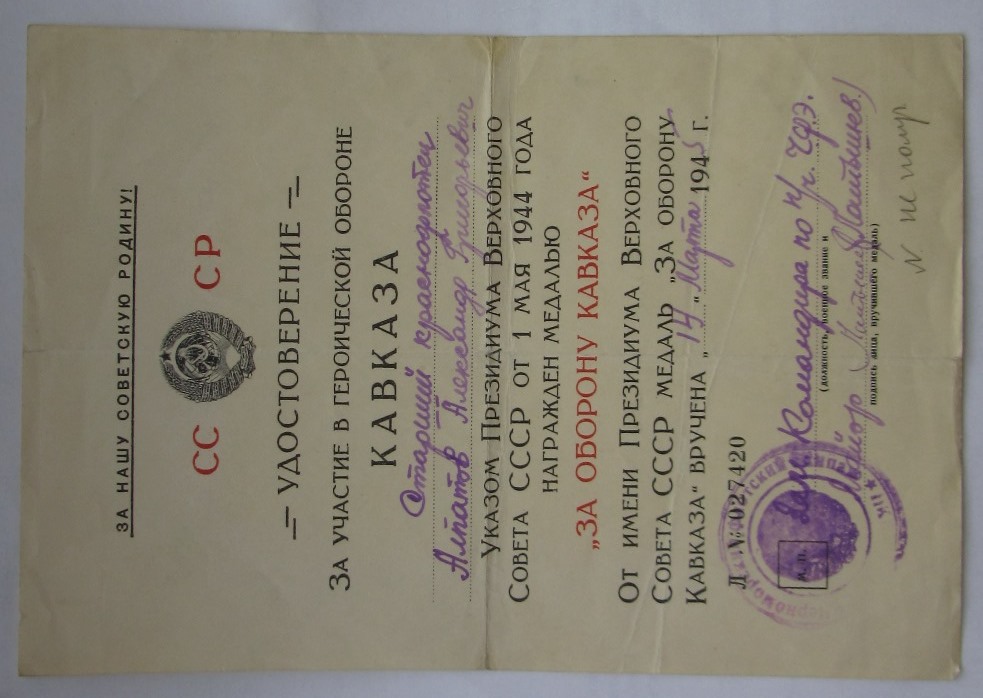 ЗА НАШУ СОВЕТСКУЮ РОДИНУ!
СС СР
УДОСТОВЕРЕНИЕ
ЗА УЧАСТИЕ В ГЕРОИЧЕСКОЙ ОБОРОНЕ
КАВКАЗА
Старший краснофлотец
Алпатов Александр Григорьевич
УКАЗОМ ПРЕЗИДИУМА ВЕРХОВНОГО
СОВЕТА СССР ОТ 1 МАЯ 1944 ГОДА
НАГРАЖДЕН МЕДАЛЬЮ
„ЗА ОБОРОНУ КАВКАЗА“
ОТ ИМЕНИ ПРЕЗИДИУМА ВЕРХОВНОГО
СОВЕТА СССР МЕДАЛЬ „ЗА ОБОРОНУ
КАВКАЗА“ ВРУЧЕНА „14“ Марта 1945 г.
Л № 027420
М. П.
Зам Командира по п/ч. ЧФЭ.
(должность, военное звание и
Майор
подпись лица, вручившего медаль)
N не получ